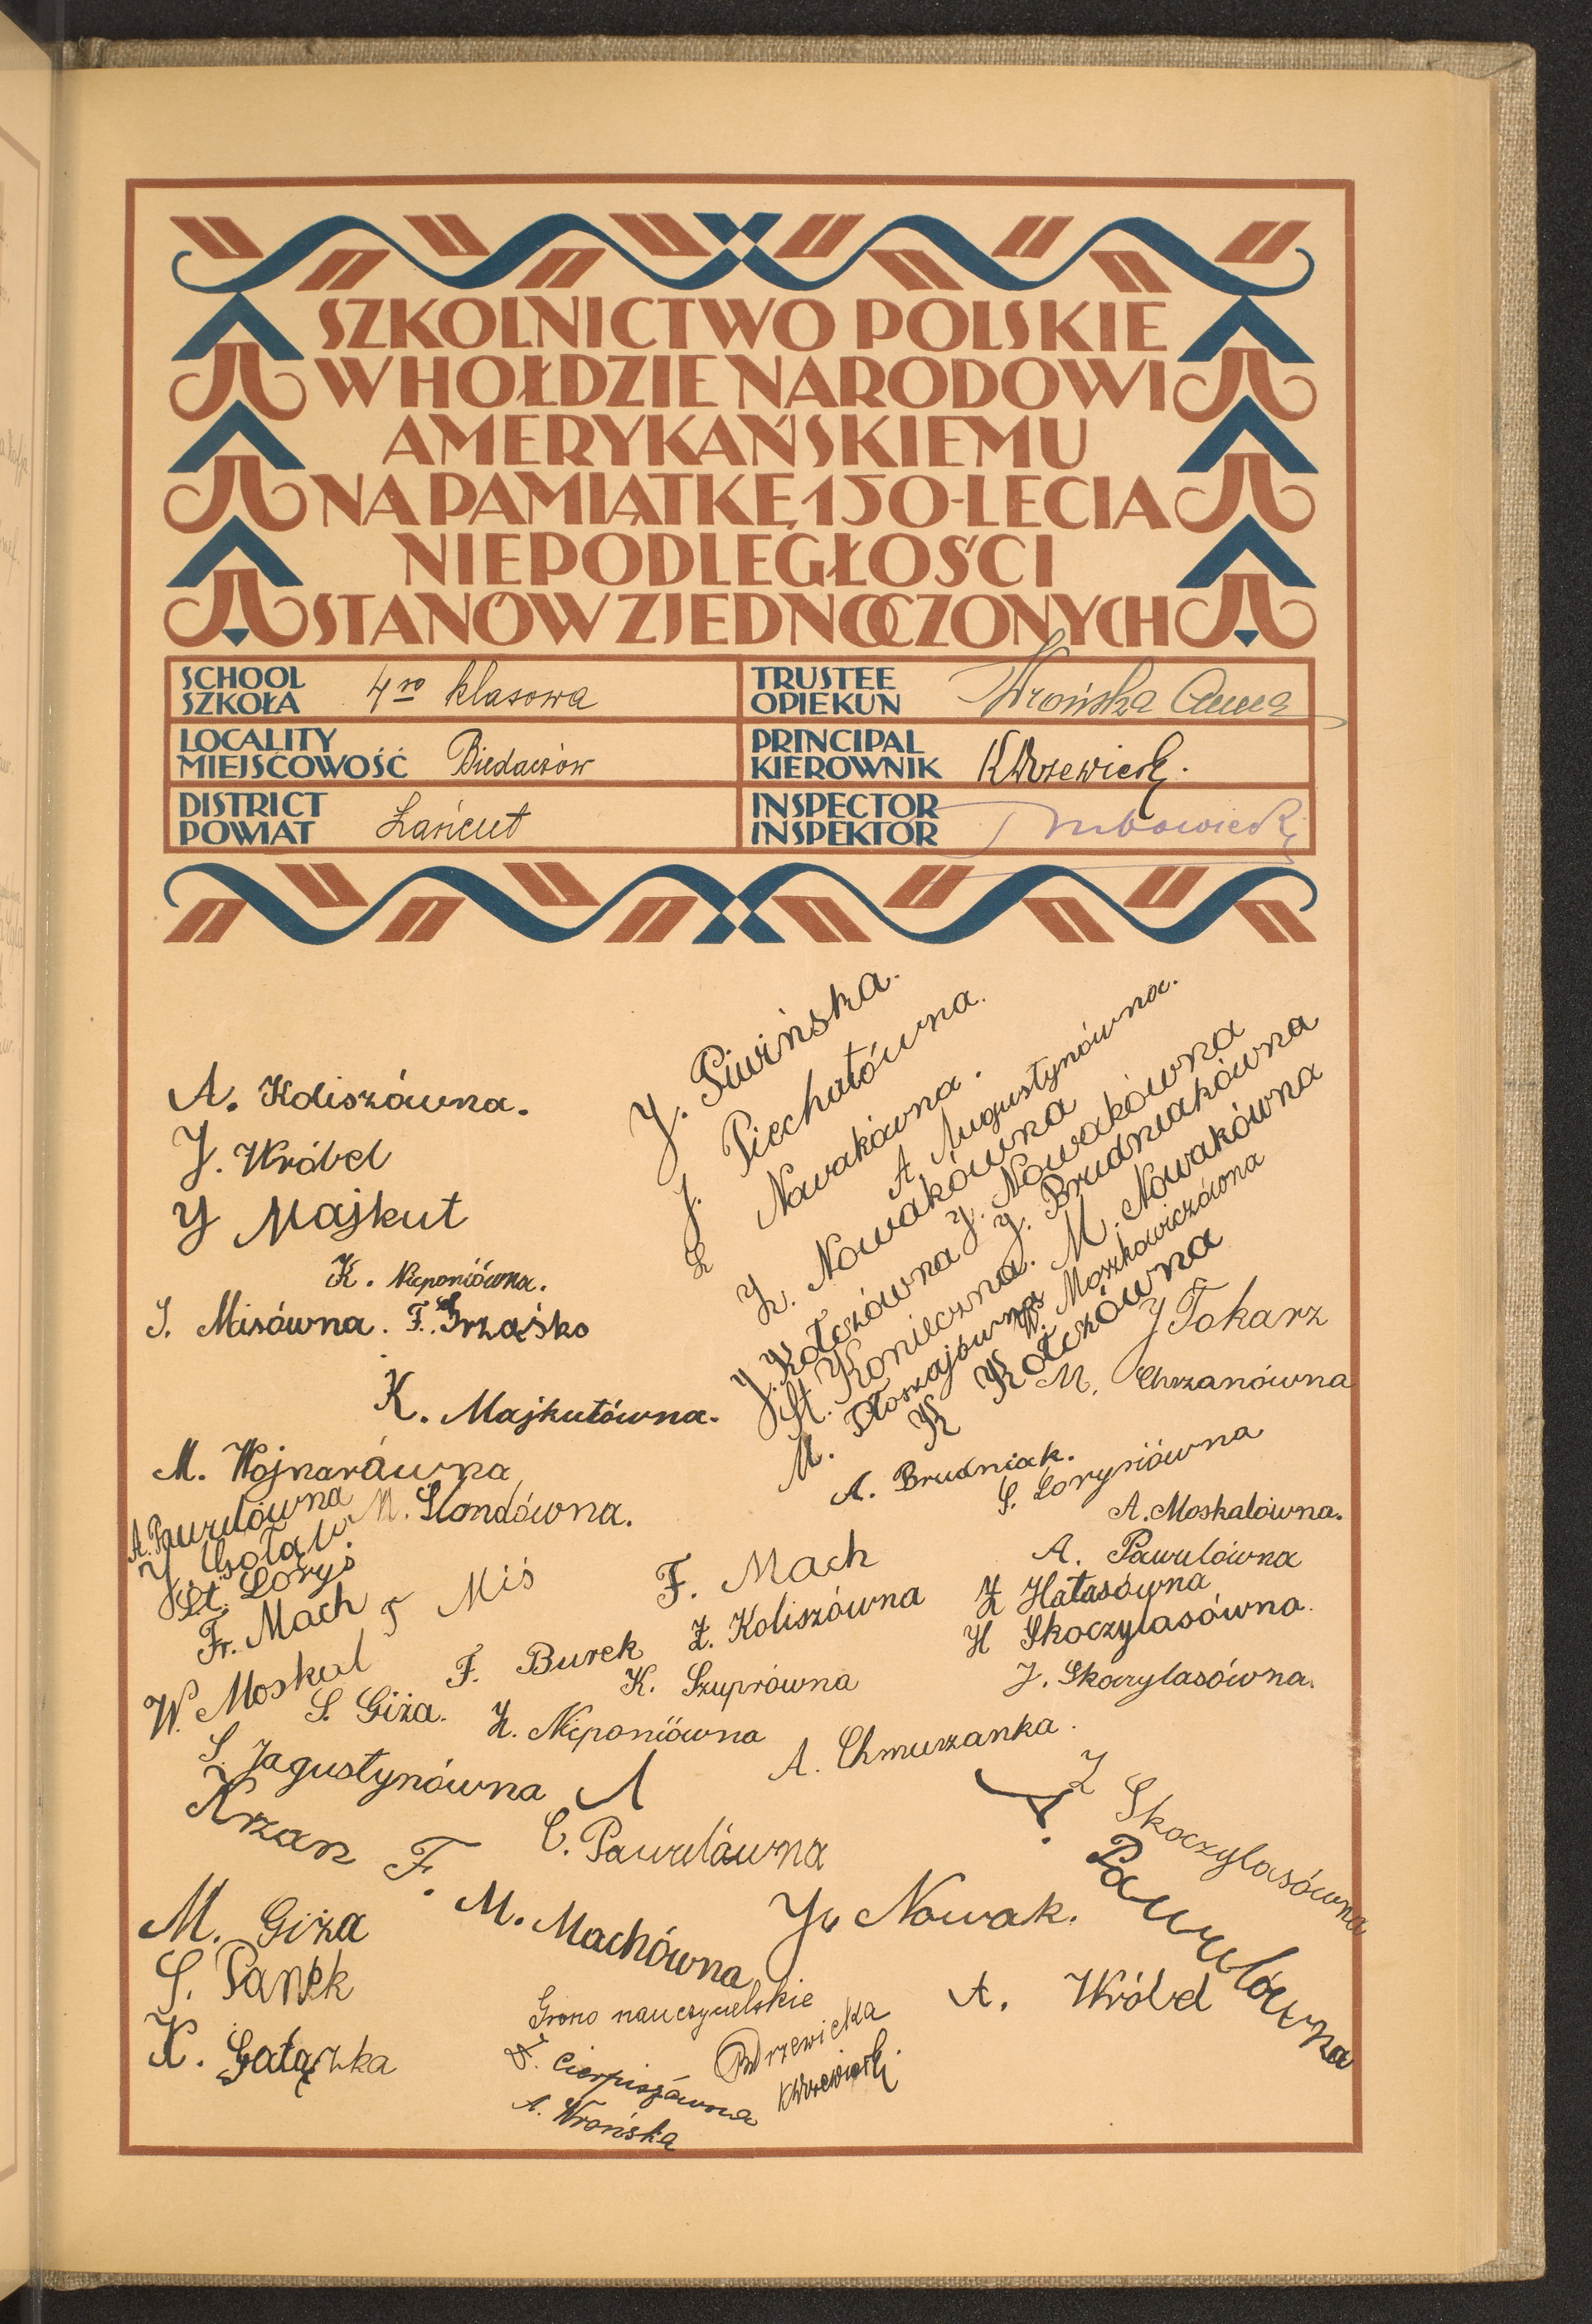 SZKOLNICTWO POLSKIE
W HOŁDZIE NARODOWI
AMERYKAŃSKIEMU
NA PAMIĄTKĘ 150-LECIA
NIEPODLEGŁOŚCI
STANÓW ZJEDNOCZONYCH
SCHOOL
SZKOŁA
4ro klasowa
TRUSTEE
OPIEKUN
Wrońska Anna
LOCALITY
MIEJSCOWOŚĆ
Biedaczów
PRINCIPAL
KIEROWNIK
KWrzewicki.
DISTRICT
POWIAT
Łańcut
INSPECTOR
INSPEKTOR
J. Piwińska.
J. Piechutówna.
Z Nowakówna.
A Augustynówna.
Z. Nowakówna
J. Nowakówna
J. Kołczówna
J. Brudniakówna
St. Konieczna.
M. Nowakówna
M. Płoszajówna
W. Moszkowiczówna
K Kołczówna
J Tokarz
M. Chrzanówna
A. Koliszówna.
J. Wróbel
J Majkut
K. Nieponiówna.
S. Misówna.
F. Grzaśko
K. Majkutówna.
M. Wojnarówna
A. Pawulówna
M. Slondówna.
J. Gołąb
St. Loryś
Fr. Mach
F Miś
W. Moskal
S. Giża.
F. Burek
F. Mach
Z. Koliszówna
K. Szuprówna
Z. Nieponiówna
A. Brudniak.
S. Lorysiówna
A. Moskalówna.
A. Pawulówna
Z Hałasówna
H Skoczylasówna.
J. Skoczylasówna.
A. Chmurzanka.
S. Jagustynówna
Krzan F.
C. Pawulówna
Z Skoczylasówna
A. Pawulówna
M. Giża
M. Machówna
J. Nowak.
S. Panek
A. Wróbel
K. Gałązka
Grono nauczycielskie
Z. Cierpiszówna
Wrzewicka
A. Wrońska
KWrzewicki.